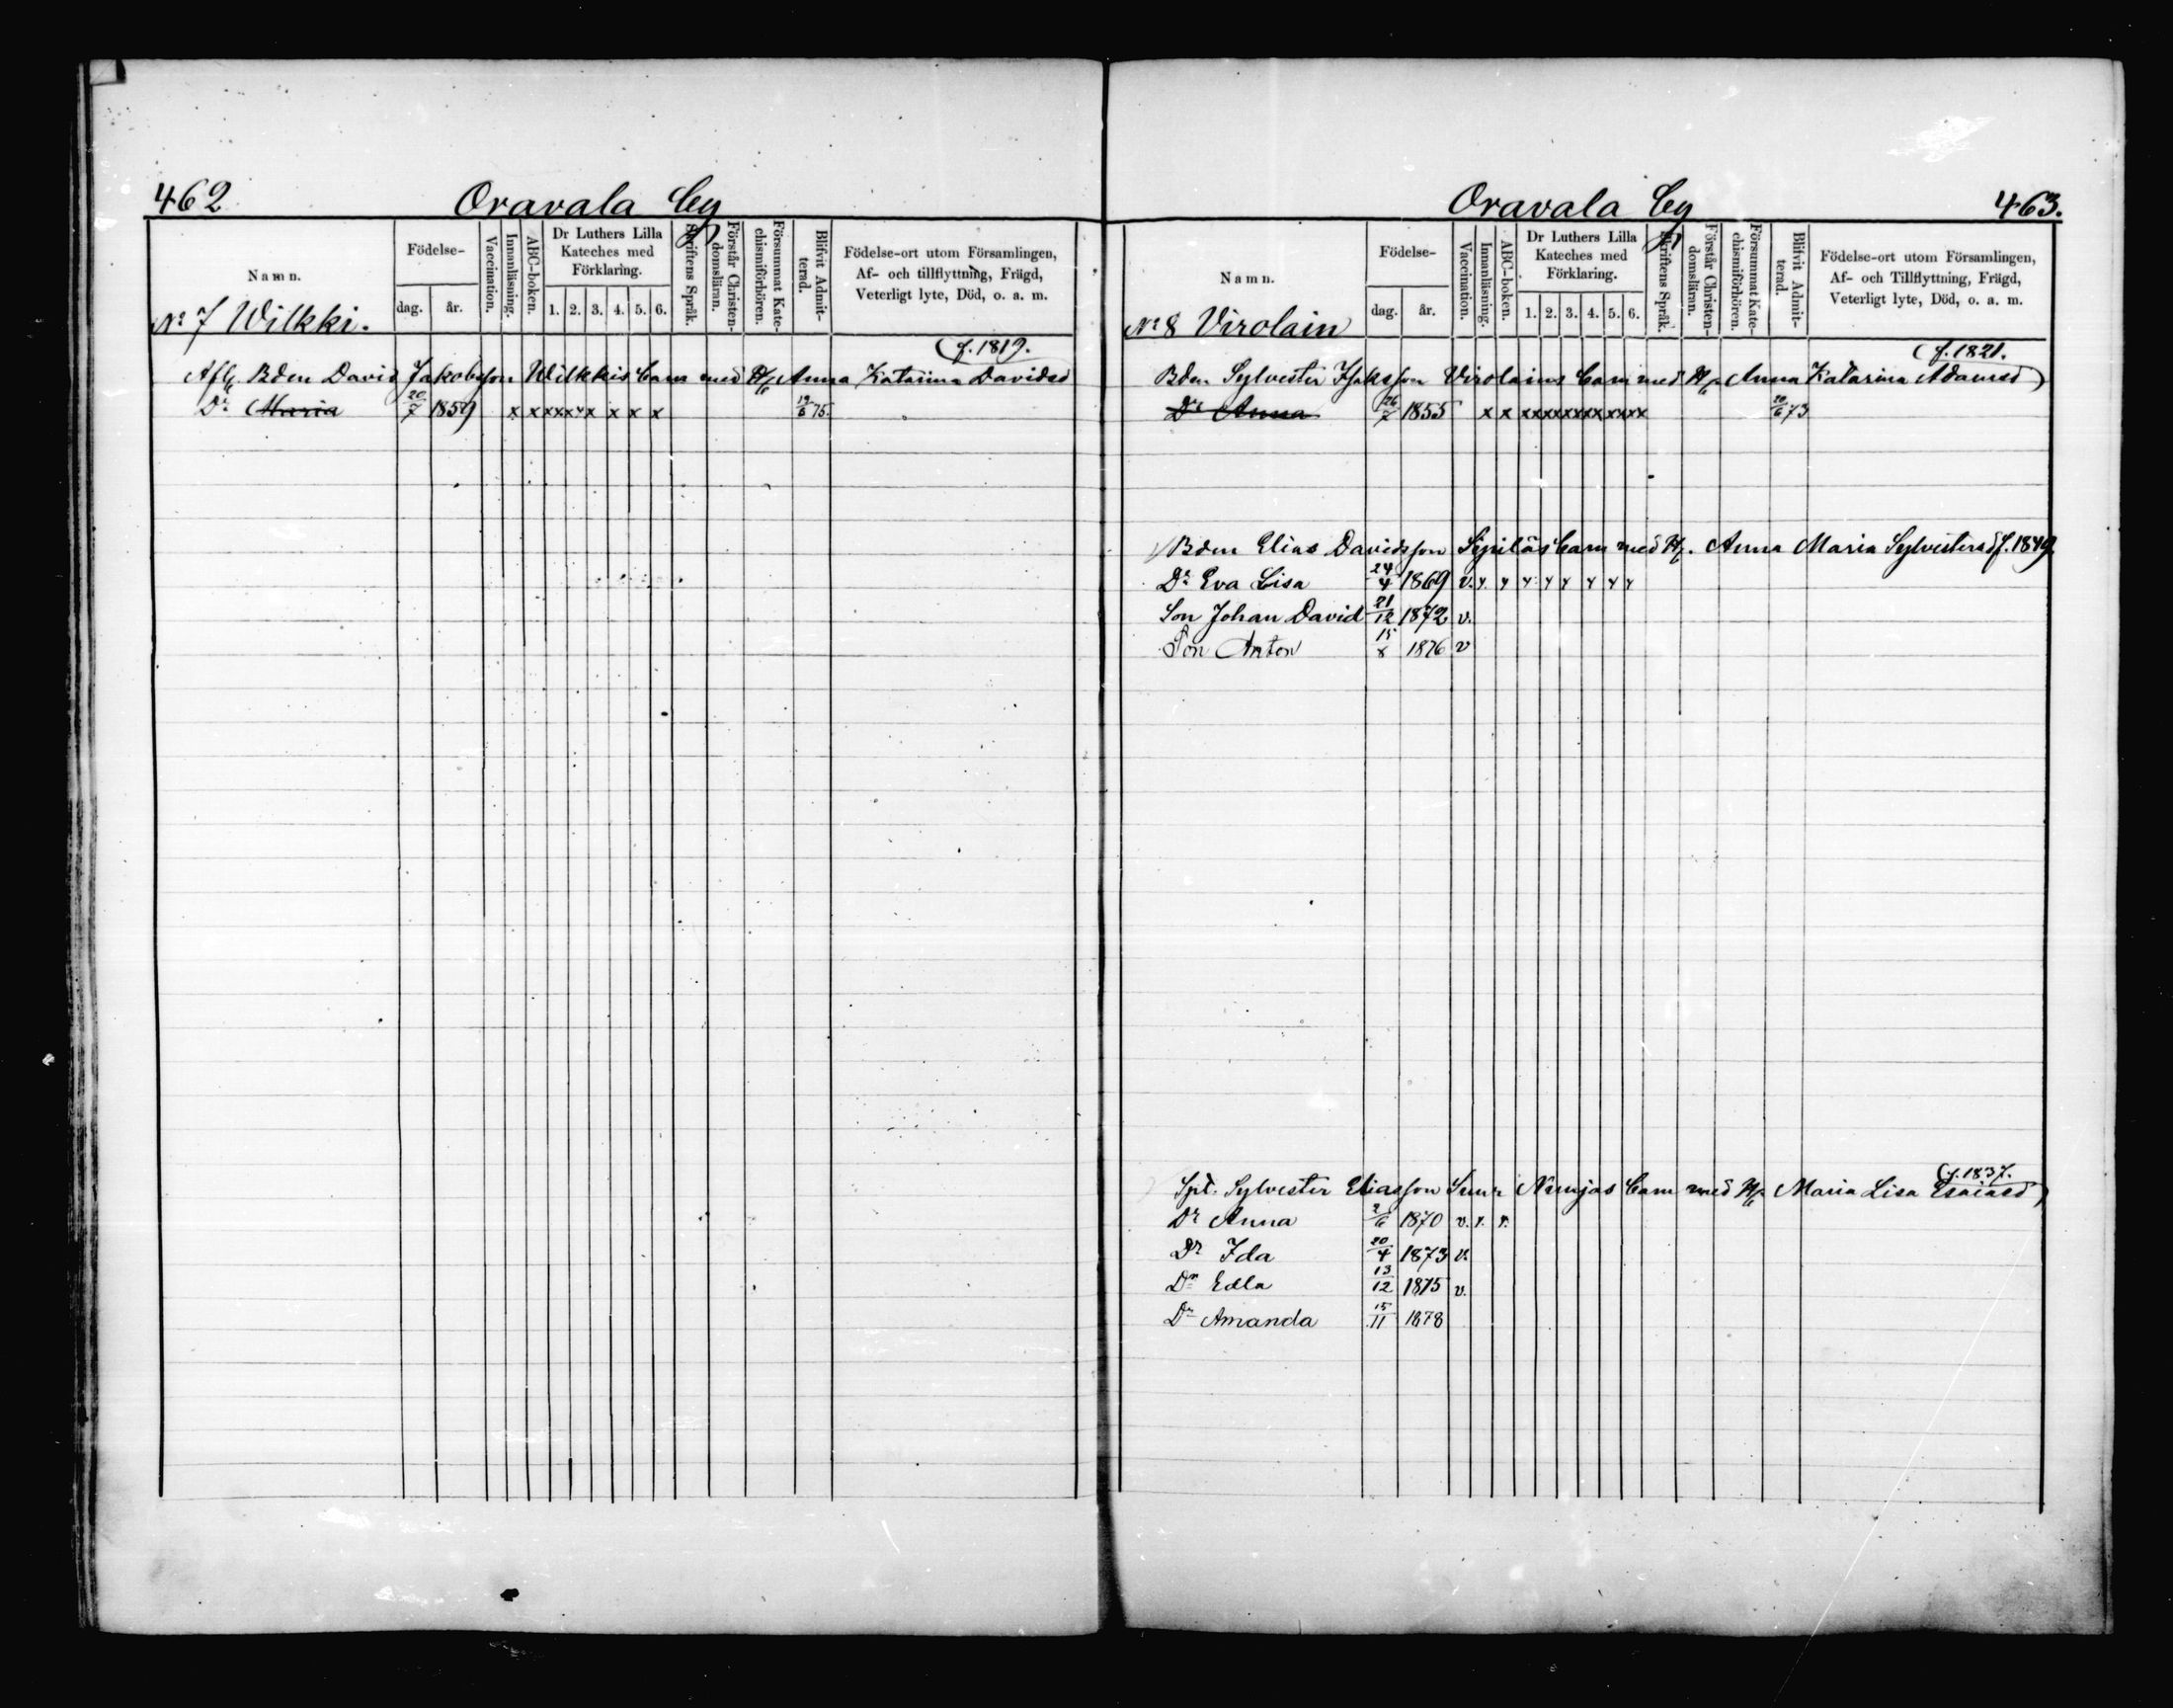 462
Oravala by
Namn.
Födelse-
dag.
år.
Vaccination.
Innanläsning.
ABC-boken.
Dr Luthers Lilla
Kateches med
Förklaring.
1. 2. 3. 4. 5. 6.
Skriftens Språk.
Förstår Christen-
domsläran.
Försummat Kate-
chismiförhören.
Blifvit Admit-
terad.
Födelse-ort utom Församlingen,
Af- och tillflyttning, Frägd,
Veterligt lyte, Död, o. a. m.
No 7 Wilkki.
(f. 1819.
Afl. Bden David Jakobsson Wilkkis barn med H. Anna Katarina Davidsd
Dr Maria 20/7 1859 x x xxxx x x x 19/6 75.
Oravala by
463.
Namn.
Födelse-
dag.
år.
Vaccination.
Innanläsning.
ABC-boken.
Dr Luthers Lilla
Kateches med
Förklaring.
1. 2. 3. 4. 5. 6.
Skriftens Språk.
Förstår Christen-
domsläran.
Försummat Kate-
chismiförhören.
Blifvit Admit-
terad.
Födelse-ort utom Församlingen,
Af- och Tillflyttning, Frägd,
Veterligt lyte, Död, o. a. m.
No 8 Virolain
(f. 1821.
Bden Sylvester Isaksson Virolains barn med H. Anna Katarina Adamsd)
Dr Anna 26/7 1855 x x xxxxxxxxxxxx 20/6 73
Bden Elias Davidsson Sipiläs barn med H. Anna Maria Sylvestersd f. 1849.
Dr Eva Lisa 24/4 1869 v. x x x x x x x x
Son Johan David 21/12 1872 v.
Son Anton 15/8 1876 v
(f. 1837.
Spt. Sylvester Eliasson Suur Nimjas barn med H. Maria Lisa Esaiasd)
Dr Anna 2/6 1870 v. x. x.
Dr Ida 20/4 1873 v.
Dr Edla 13/12 1875 v.
Dr Amanda 15/11 1878